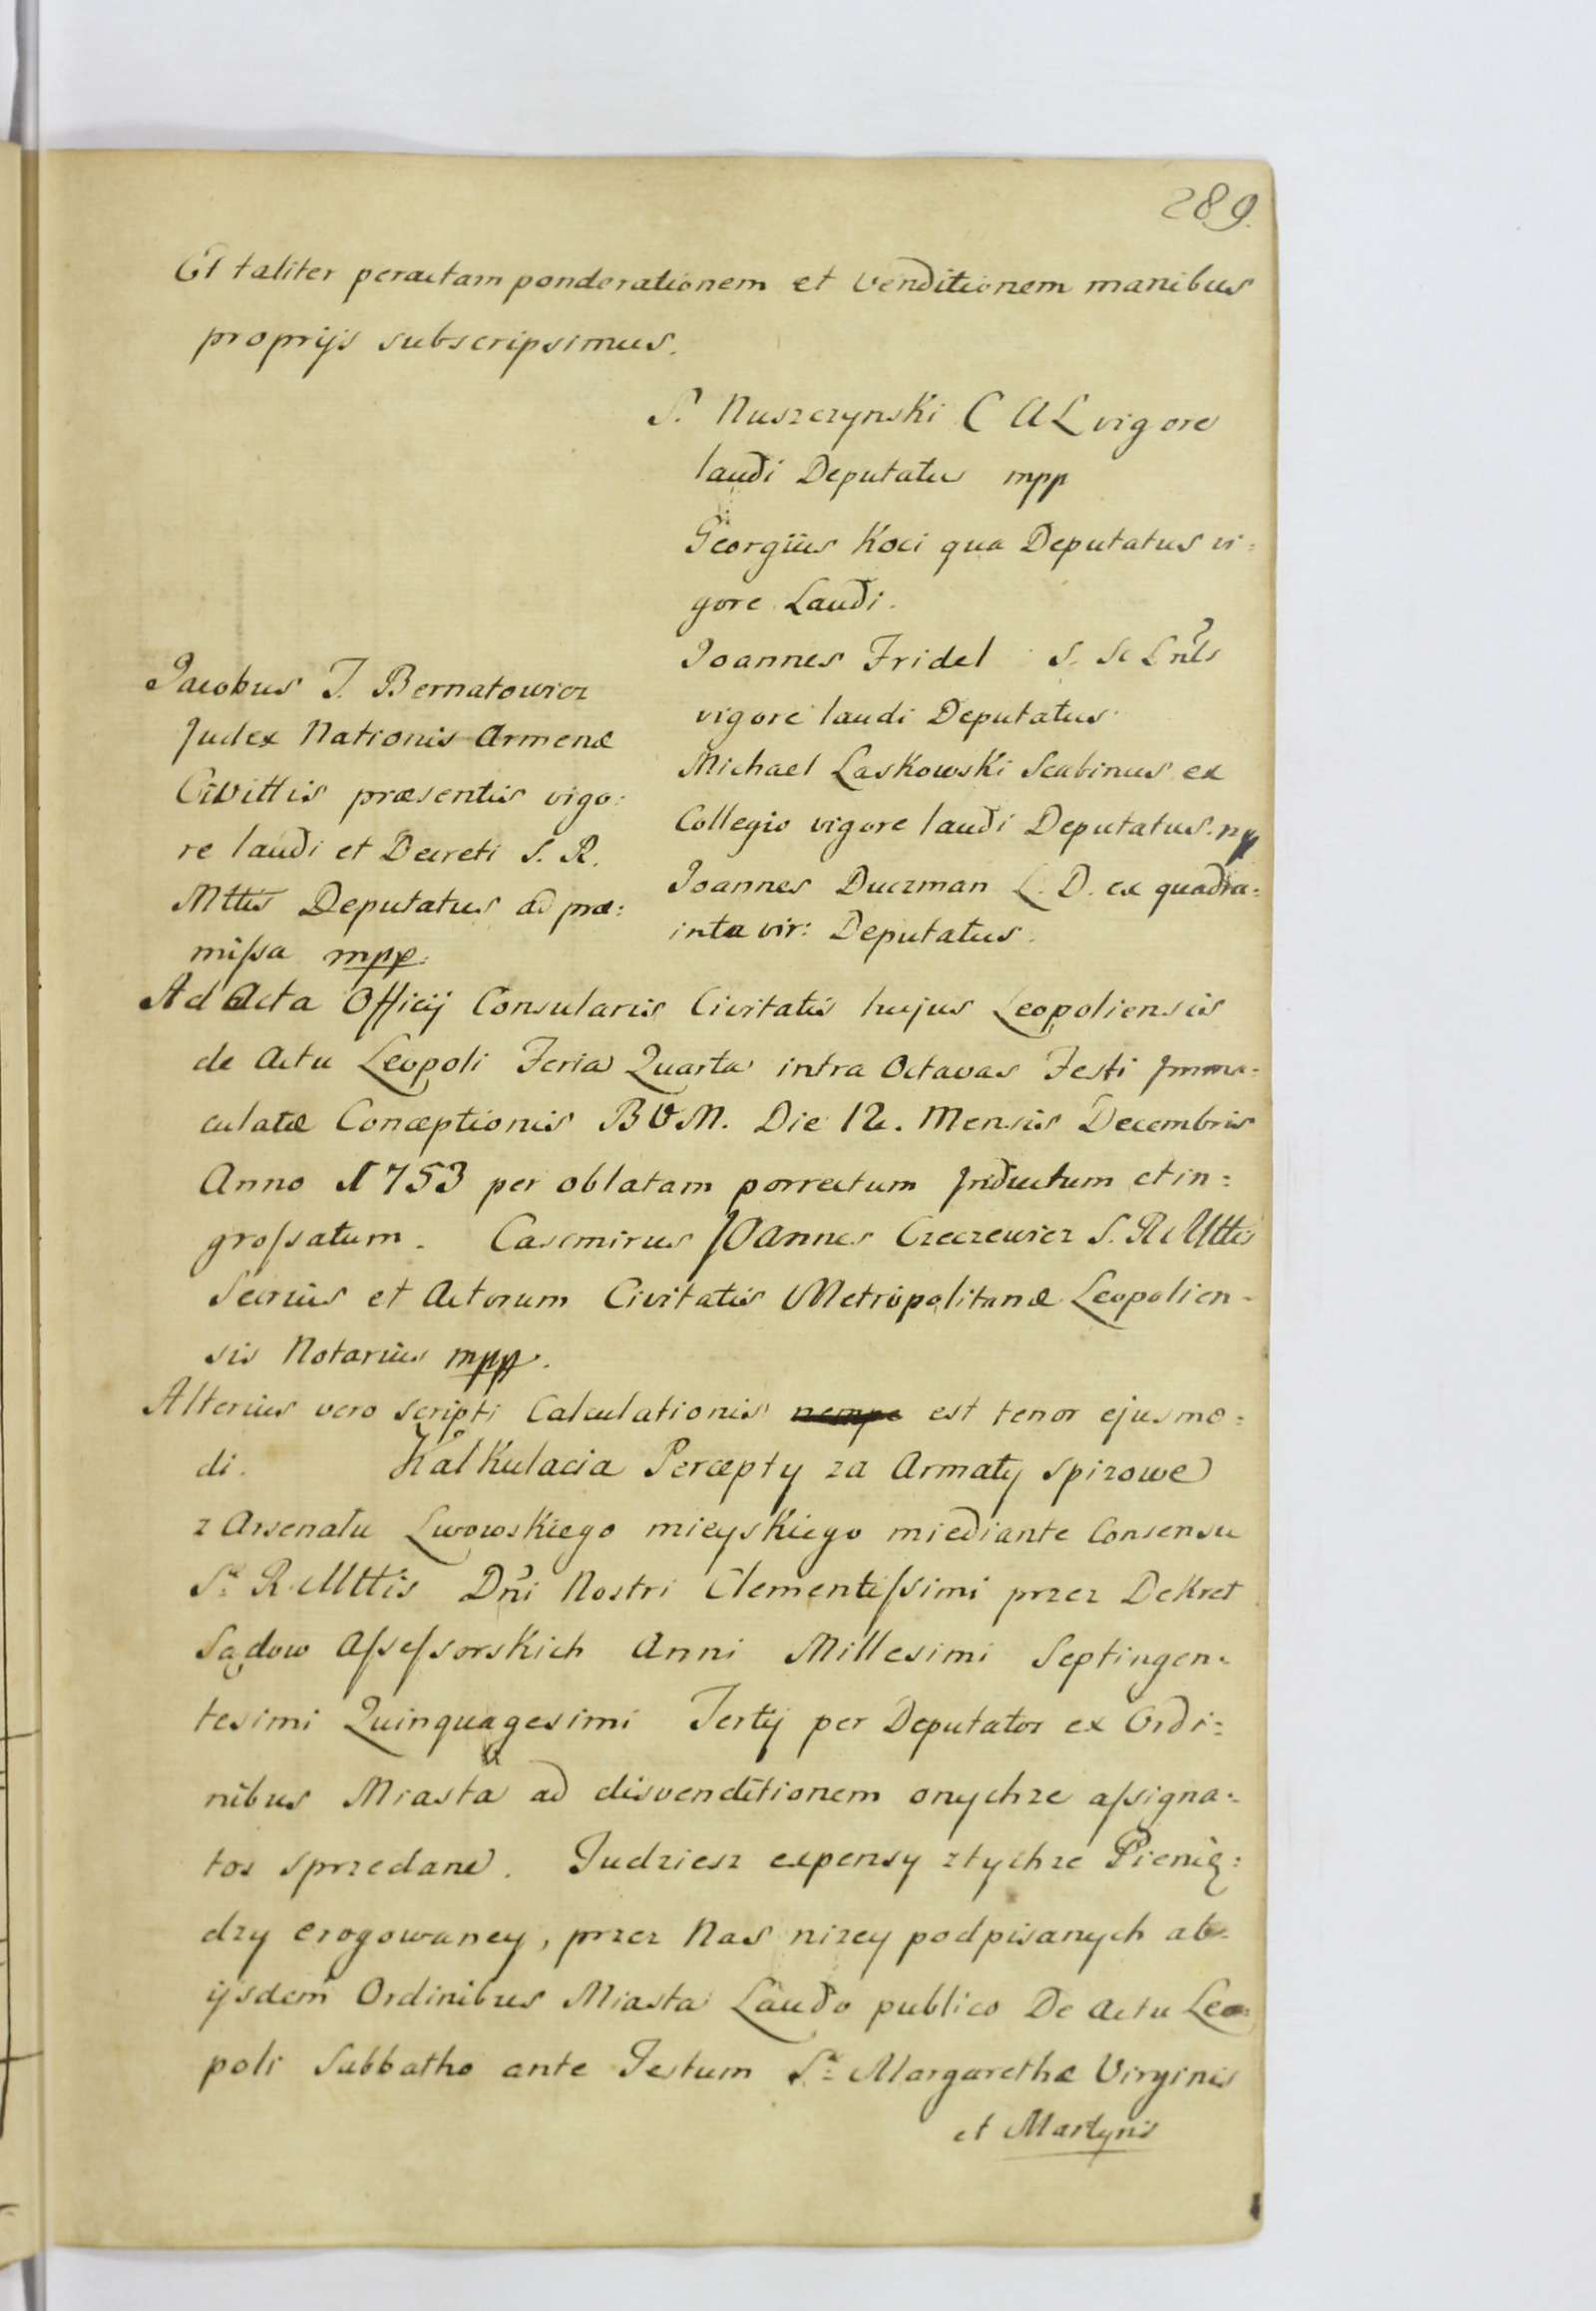 289.
Et taliter peractam ponderationem et venditionem manibus
proprijs subscripsimus.
S. Nuszczynski C A L vigore
laudi Deputatu mpp
Georgius Koci qua Deputatus vi=
gore Laudi.
Joannes Fridel S. Sc Lnls
vigore laudi Deputatus
Michael Laskowski Scabinus ex
Collegio vigore laudi Deputatus. mp
Joannes Duczman L. D. ex quadra=
inta vir: Deputatus.
Jacobus J. Bernatowicz
Judex Nationis Armenæ
Civittis præsentis vigo:
re laudi et Decreti S. R.
Mttis Deputatus ad præ:
missa mpp:
Ad Acta Officij Consularis Civitatis hujus Leopoliensis
de Actu Leopoli Feria Quarta intra Octavas Festi Imma=
culatæ Conceptionis BVM. Die 12. Mensis Decembris
Anno 1753 per oblatam porrectum Inductum et in=
grossatum. Casemirus Joannes Czeczewicz S. R Mttis
Secrius et Actorum Civitatis Metropolitanæ Leopolien-
sis Notarius mpp.
Alterius vero scripti Calculationis nempe est tenor ejusmo=
di. Kalkulacia Percepty za Armaty spizowe
z Arsenatu Lwowskiego mieyskiego miediante Consensu
Sæ R. Mttis Dni Nostri Clementissimi przez Dekret
Sądow Assessorskich Anni Millesimi Septingen=
tesimi Quinquagesimi Tertij per Deputatos ex Ordi=
nibus Miasta ad disvenditionem onychze assigna=
tos sprzedane. Tudziesz expensy z tychze Pienię=
dzy erogowaney, przez Nas nizey podpisanych ab
ijsdem Ordinibus Miasta Laudo publico De Actu Leo=
poli Sabbatho ante Festum Sæ Margarethæ Virginis
et Martyris